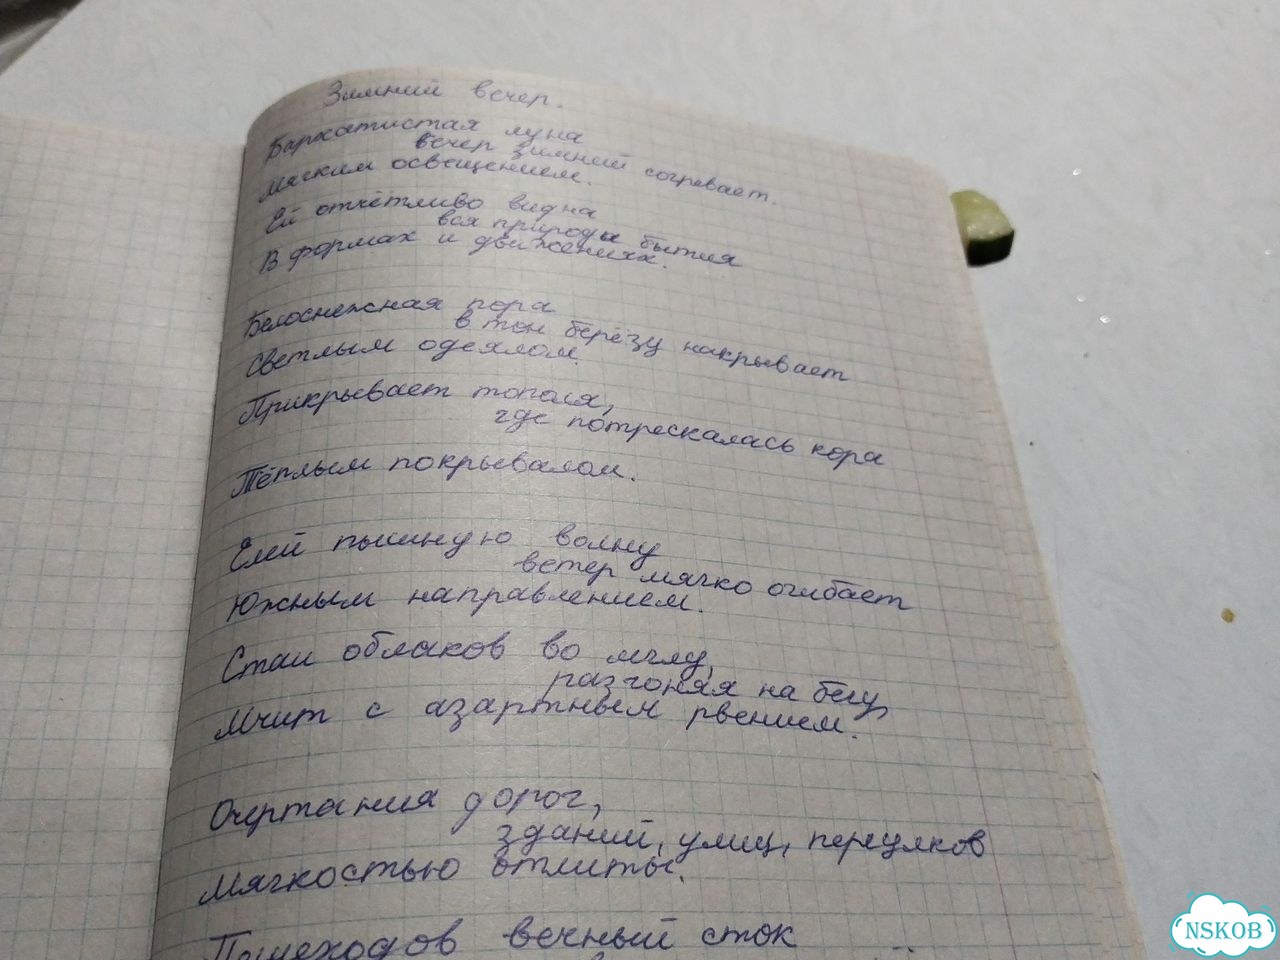 Зимний вечер.
Бархатистая луна
вечер зимний согревает.
Мягким освещением.
Ей отчётливо видна
вся природы бытия
В формах и движениях.
Белоснежная пора
в тон берёзу накрывает
Светлым одеялом.
Прикрывает тополя,
где потрескалась кора
Тёплым покрывалом.
Елей пышную волну
ветер мягко огибает
Южным направлением.
Стаи облаков во мглу,
разгоняя на бегу,
Мчит с азартным рвением.
Очертания дорог,
зданий, улиц, переулков
Мягкостью отлиты.
Пешеходов вечный сток
NSKOB